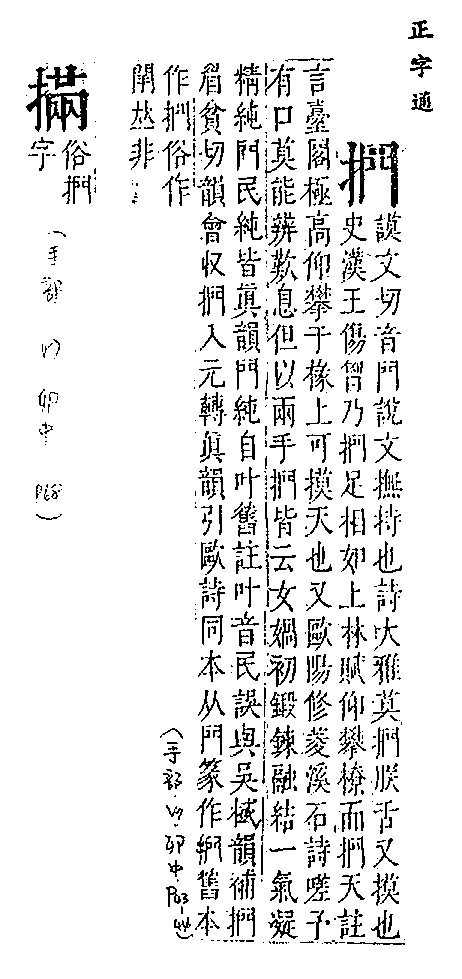 正字通
捫
謨文切音門說文撫持也詩大雅莫捫朕舌又摸也
史漢王傷胷乃捫足相如上林賦仰攀橑而捫天註
言臺閣極高仰攀于橑上可摸天也又歐陽修菱溪石詩嗟予
有口莫能辨歎息但以兩手捫皆云女媧初鍛鍊融結一氣凝
精純門民純皆眞韻門純自叶舊註叶音民誤與吳棫韻補捫
眉貧切韻會収捫入元轉眞韻引歐詩同本从門篆作捫舊本
作捫俗作
𢵧𠀤非
㨺
俗捫
字
(手部 卯中